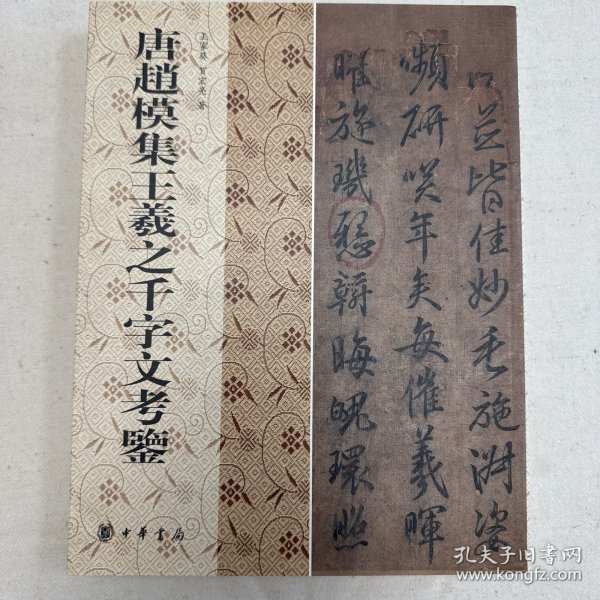 王家葵 賈宏亮 著
唐趙模集王羲之千字文考鑒
中華書局
並皆佳妙毛施淑姿
嚬研咲年矢每催羲暉
曜旋璣懸斡晦魄環照
孔夫子旧书网
www.kongfz.com